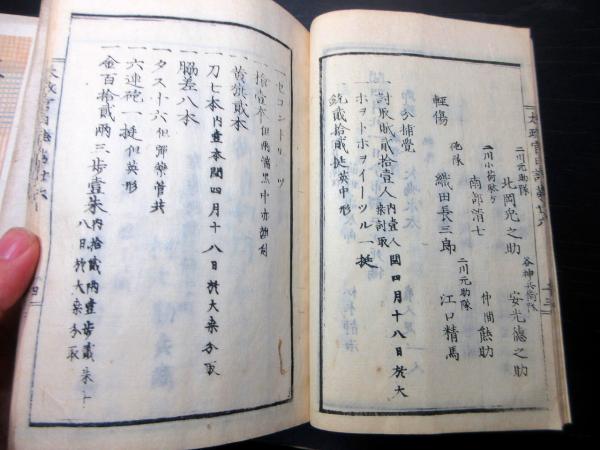 二川元助隊
北岡兇之助
谷神兵衛隊
安光德之助
二川小荷駄方
南部清七
仲間
熊助
砲隊
織田長三郎
二川元助隊
江口精馬
輕傷
分捕覚
討取賊貳拾壹人内壹人閏四月十八日於大桒討取
一ホヲトホヲイーツル一挺
一銃貳拾貳挺英中形
一セコントリツ
一拾壹本
一黄旗貳本
一刀七本内壹本閏四月十八日於大桒分取
一脇差八本
一タス十六但彈藥管共
一六連砲一挺但英形
一金百拾貳兩三步壹朱内拾貳兩壹步貳朱十八日於大桒分取
太政官日誌第廿六